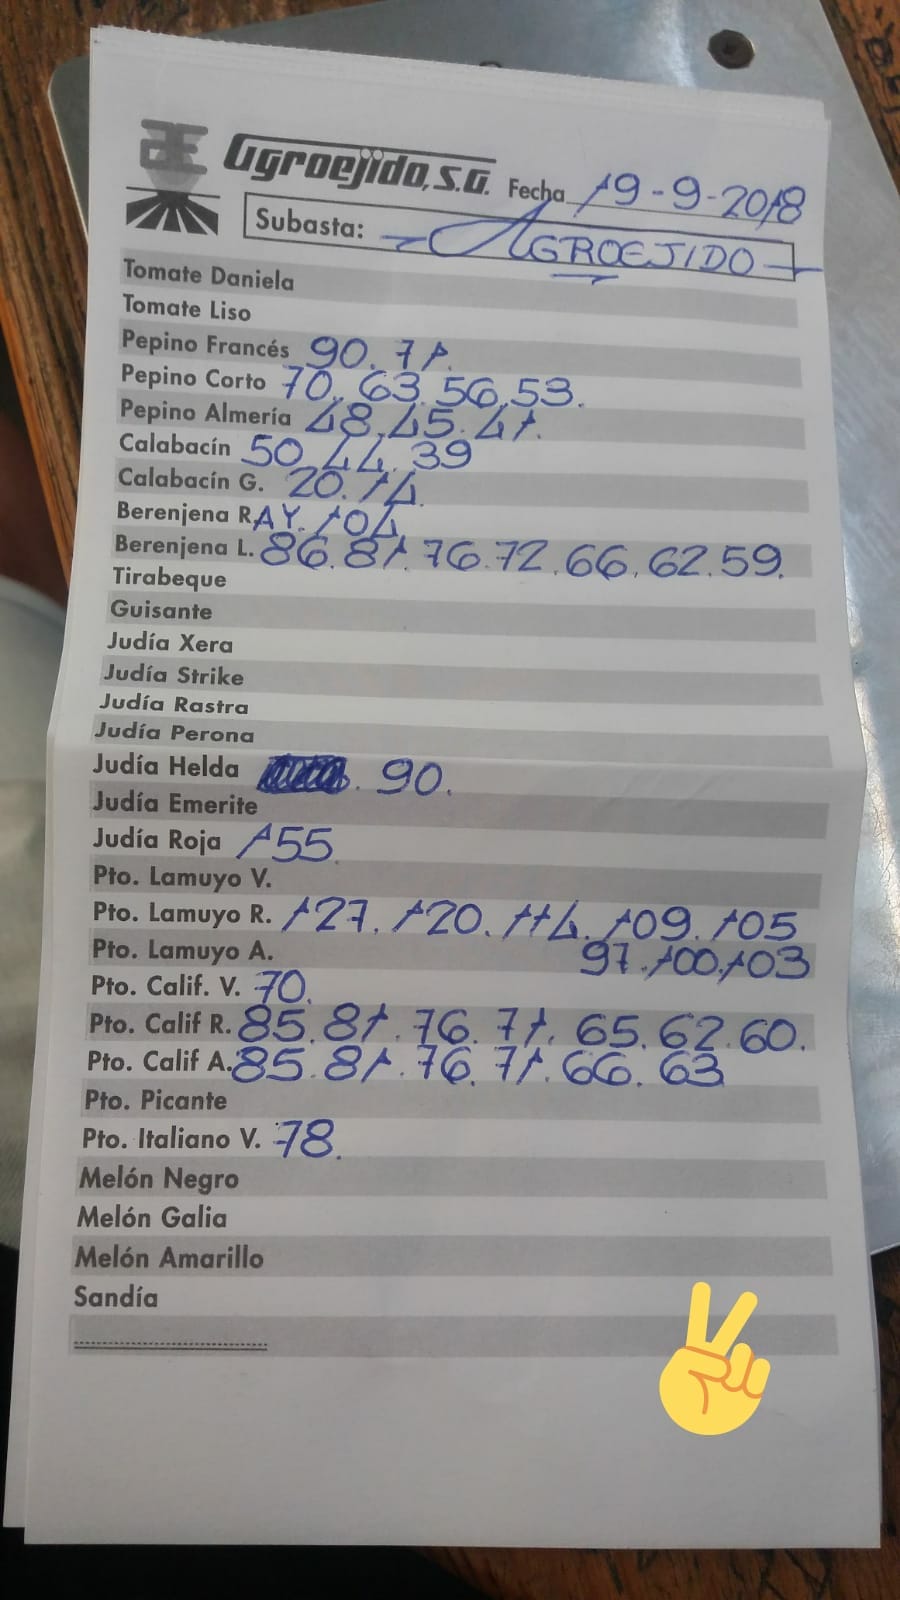 Agroejido, S.A. Fecha 19-9-2018
Subasta: AGROEJIDO
Tomate Daniela
Tomate Liso
Pepino Francés 90. 71.
Pepino Corto 70. 63. 56. 53.
Pepino Almería 48. 45. 41.
Calabacín 50. 44. 39
Calabacín G. 20. 14.
Berenjena RAY. 104
Berenjena L. 86. 81. 76. 72. 66. 62. 59.
Tirabeque
Guisante
Judía Xera
Judía Strike
Judía Rastra
Judía Perona
Judía Helda 90.
Judía Emerite
Judía Roja 155
Pto. Lamuyo V.
Pto. Lamuyo R. 127. 120. 114. 109. 105
Pto. Lamuyo A. 97. 100. 103
Pto. Calif. V. 70.
Pto. Calif R. 85. 81. 76. 71. 65. 62. 60.
Pto. Calif A. 85. 81. 76. 71. 66. 63
Pto. Picante
Pto. Italiano V. 78.
Melón Negro
Melón Galia
Melón Amarillo
Sandía